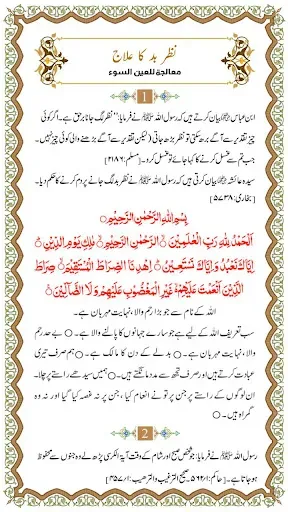 نظر بد کا علاج
معالجة للعين السوء
1
ابن عباس ﷜ بیان کرتے ہیں کہ رسول اللہ ﷺ نے فرمایا: ”نظر لگ جانا برحق ہے۔ اگر کوئی
چیز تقدیر سے آگے بڑھ سکتی تو نظر بڑھ جاتی (لیکن تقدیر سے آگے بڑھنے والی کوئی چیز نہیں۔
جب تم سے غسل کرنے کا کہا جائے تو غسل کرو۔ [مسلم: ۲۱۸۶]
سیدہ عائشہ ﷞ بیان کرتی ہیں کہ رسول اللہ ﷺ نے نظر بد لگ جانے پر دم کرنے کا حکم دیا۔
[بخاری: ۵۷۳۸]
بِسْمِ اللّٰهِ الرَّحْمٰنِ الرَّحِيْمِ
اَلْحَمْدُ لِلّٰهِ رَبِّ الْعٰلَمِيْنَ ۝ الرَّحْمٰنِ الرَّحِيْمِ ۝ مٰلِكِ يَوْمِ الدِّيْنِ ۝
اِيَّاكَ نَعْبُدُ وَاِيَّاكَ نَسْتَعِيْنُ ۝ اِهْدِنَا الصِّرَاطَ الْمُسْتَقِيْمَ ۝ صِرَاطَ
الَّذِيْنَ اَنْعَمْتَ عَلَيْهِمْ ۝ غَيْرِ الْمَغْضُوْبِ عَلَيْهِمْ وَلَا الضَّآلِّيْنَ ۝
اللہ کے نام سے جو بڑا رحم والا، نہایت مہربان ہے۔
سب تعریف اللہ کے لیے ہے جو سارے جہانوں کا پالنے والا ہے۔ ○ بے حد رحم
والا، نہایت مہربان ہے۔ ○ بدلے کے دن کا مالک ہے۔ ○ ہم صرف تیری
عبادت کرتے ہیں اور صرف تجھ سے مدد مانگتے ہیں۔ ○ ہمیں سیدھے راستے پر چلا۔
ان لوگوں کے راستے پر جن پر تو نے انعام کیا، جن پر نہ غصہ کیا گیا اور نہ وہ
گمراہ ہیں۔ ○
2
رسول اللہ ﷺ نے فرمایا: جو شخص صبح اور شام کے وقت آیۃ الکرسی پڑھ لے وہ جنوں سے محفوظ
ہو جاتا ہے۔ [حاکم: ۵۶۲/۱، صحیح الترغیب والترھیب: ۳۵۷/۱]